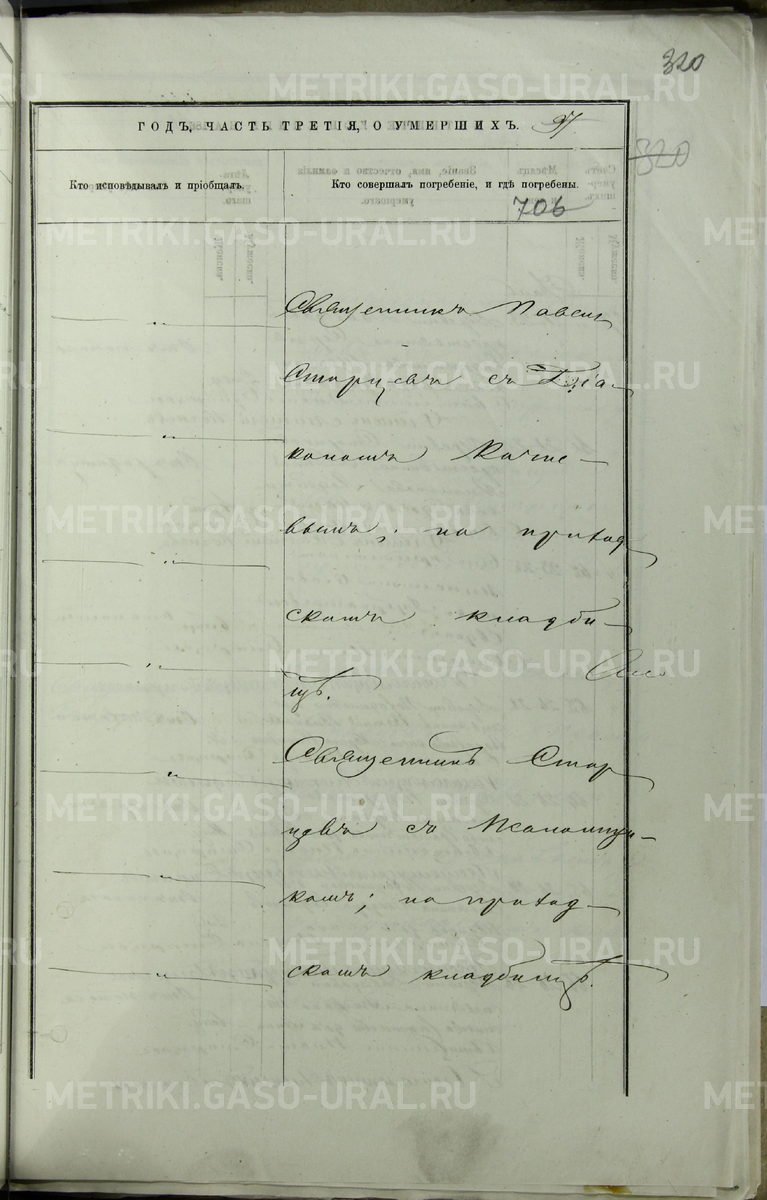 320
ГОДЪ, ЧАСТЬ ТРЕТІЯ, О УМЕРШИХЪ. 97
320
Кто исповѣдывалъ и пріобщалъ.
Кто совершалъ погребеніе, и гдѣ погребены.
706
Священникъ Павелъ
Старцевъ съ Діа-
кономъ Кочне-
вымъ; на приход
скомъ кладби-
щѣ.
Священникъ Стар
цевъ съ Псаломщи-
комъ; на приход-
скомъ кладбищѣ.
METRIKI.GASO-URAL.RU